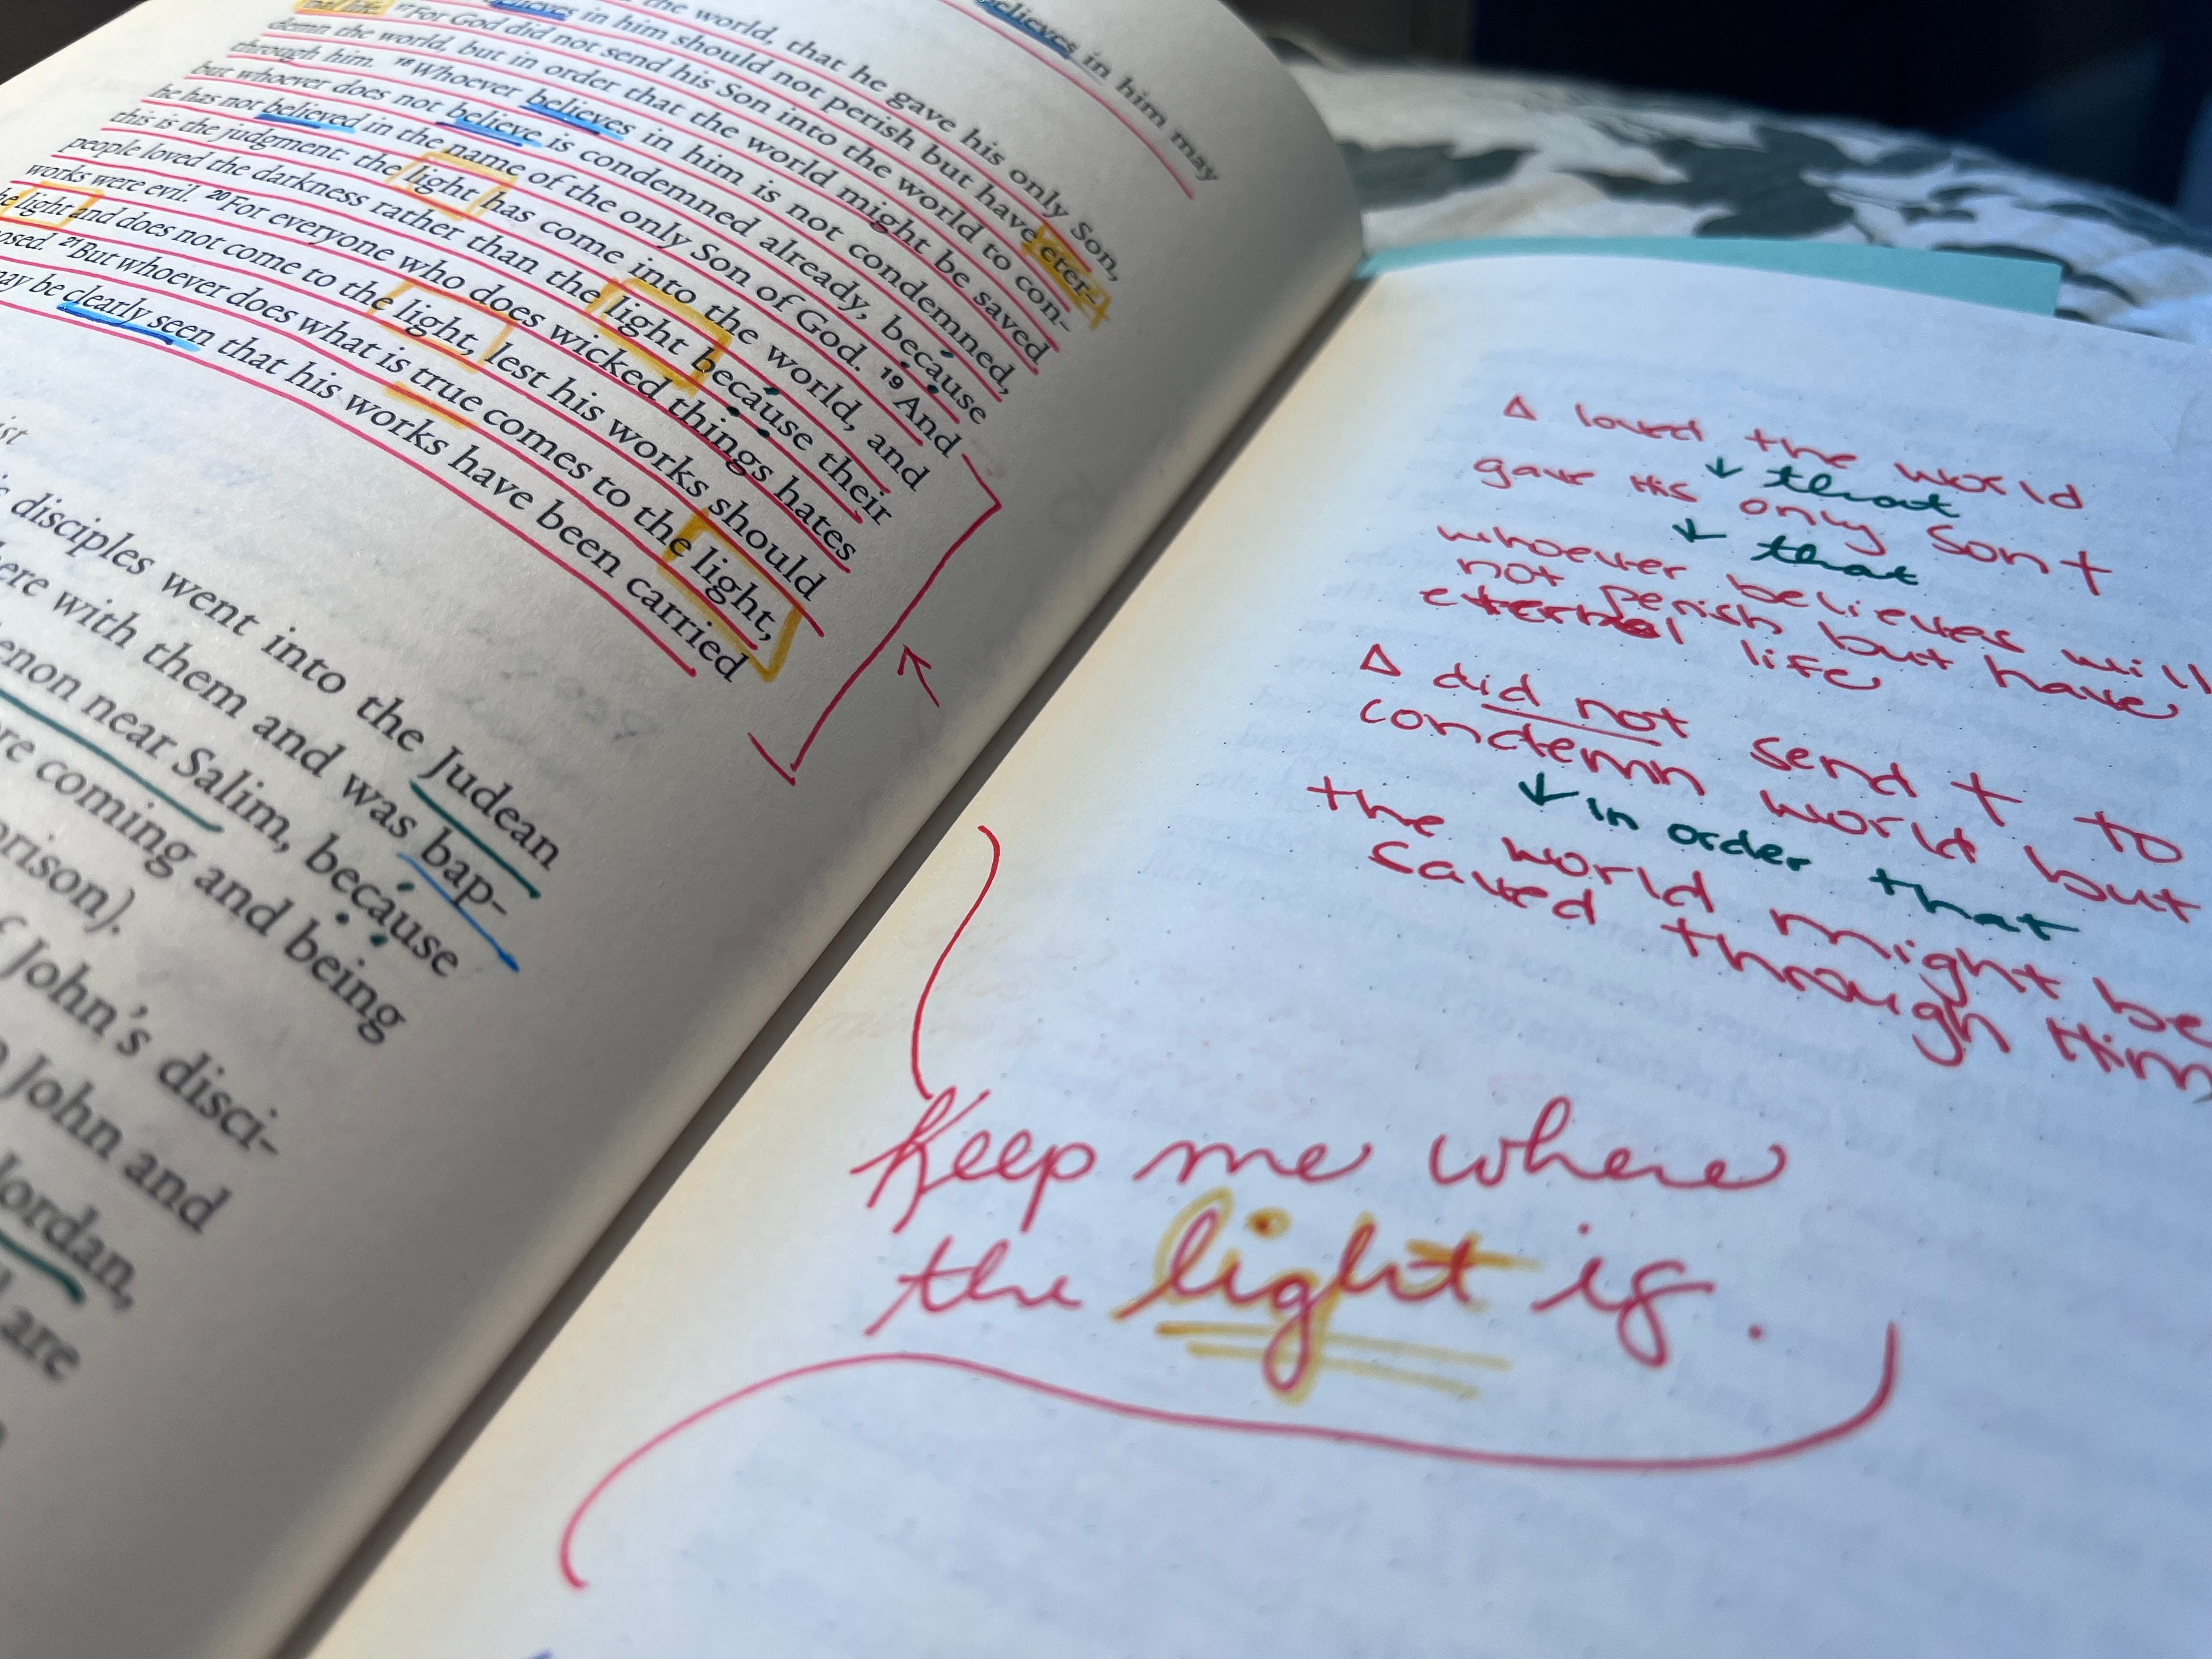 believes in him may
the world, that he gave his only Son,
believes in him should not perish but have eter-
nal life. 17 For God did not send his Son into the world to con-
demn the world, but in order that the world might be saved
through him. 18 Whoever believes in him is not condemned,
but whoever does not believe is condemned already, because
he has not believed in the name of the only Son of God. 19 And
this is the judgment: the light has come into the world, and
people loved the darkness rather than the light because their
works were evil. 20 For everyone who does wicked things hates
he light and does not come to the light, lest his works should
osed. 21 But whoever does what is true comes to the light,
may be clearly seen that his works have been carried
ist
disciples went into the Judean
ere with them and was bap-
enon near Salim, because
re coming and being
prison).
John's disci-
John and
Jordan,
are
Δ loved the world
↓ that
gave His only Son †
↓ that
whoever believes will
not perish but have
eternal life
Δ did not send † to
condemn world but
↓ in order that
the world might be
saved through Him
Keep me where
the light is.